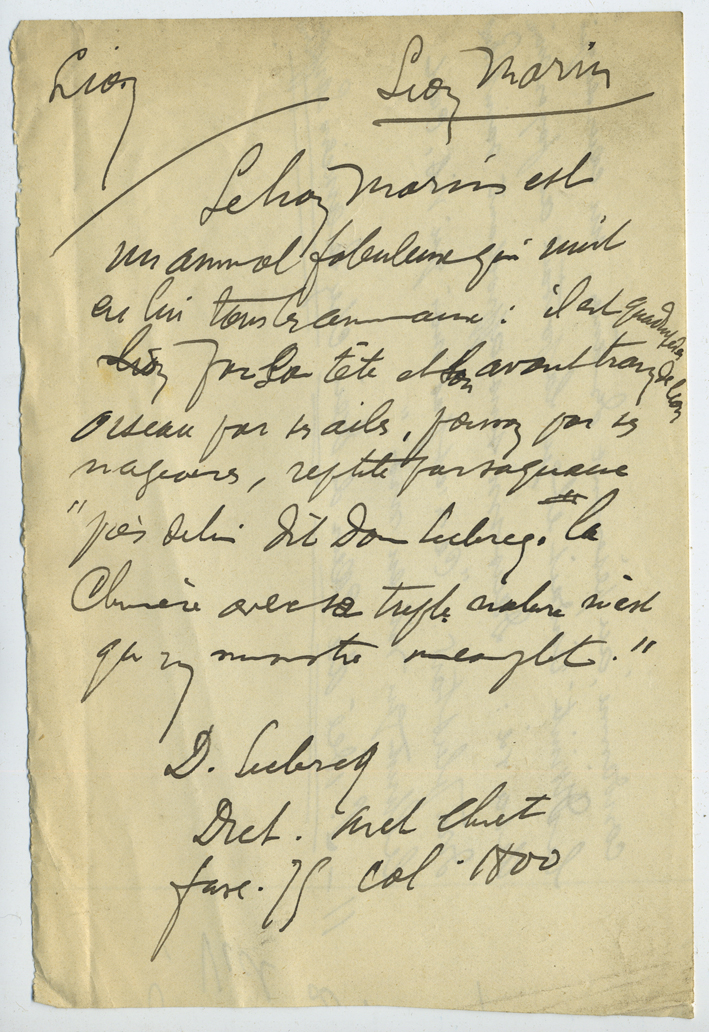 Lion
Lion Marin
Le lion Marin est
un animal fabuleux qui unit
en lui tous les animaux : il est quadrupède
Lion par sa tête et son avant train de lion
oiseau par ses ailes, poisson par ses
nageoires, reptile par sa queue
"près de lui dit Dom Leclercq. la
Chimère avec sa triple nature n'est
qu'un monstre incomplet."
D. Leclercq
Dict. Arch Chret
fasc. 75 col. 1800